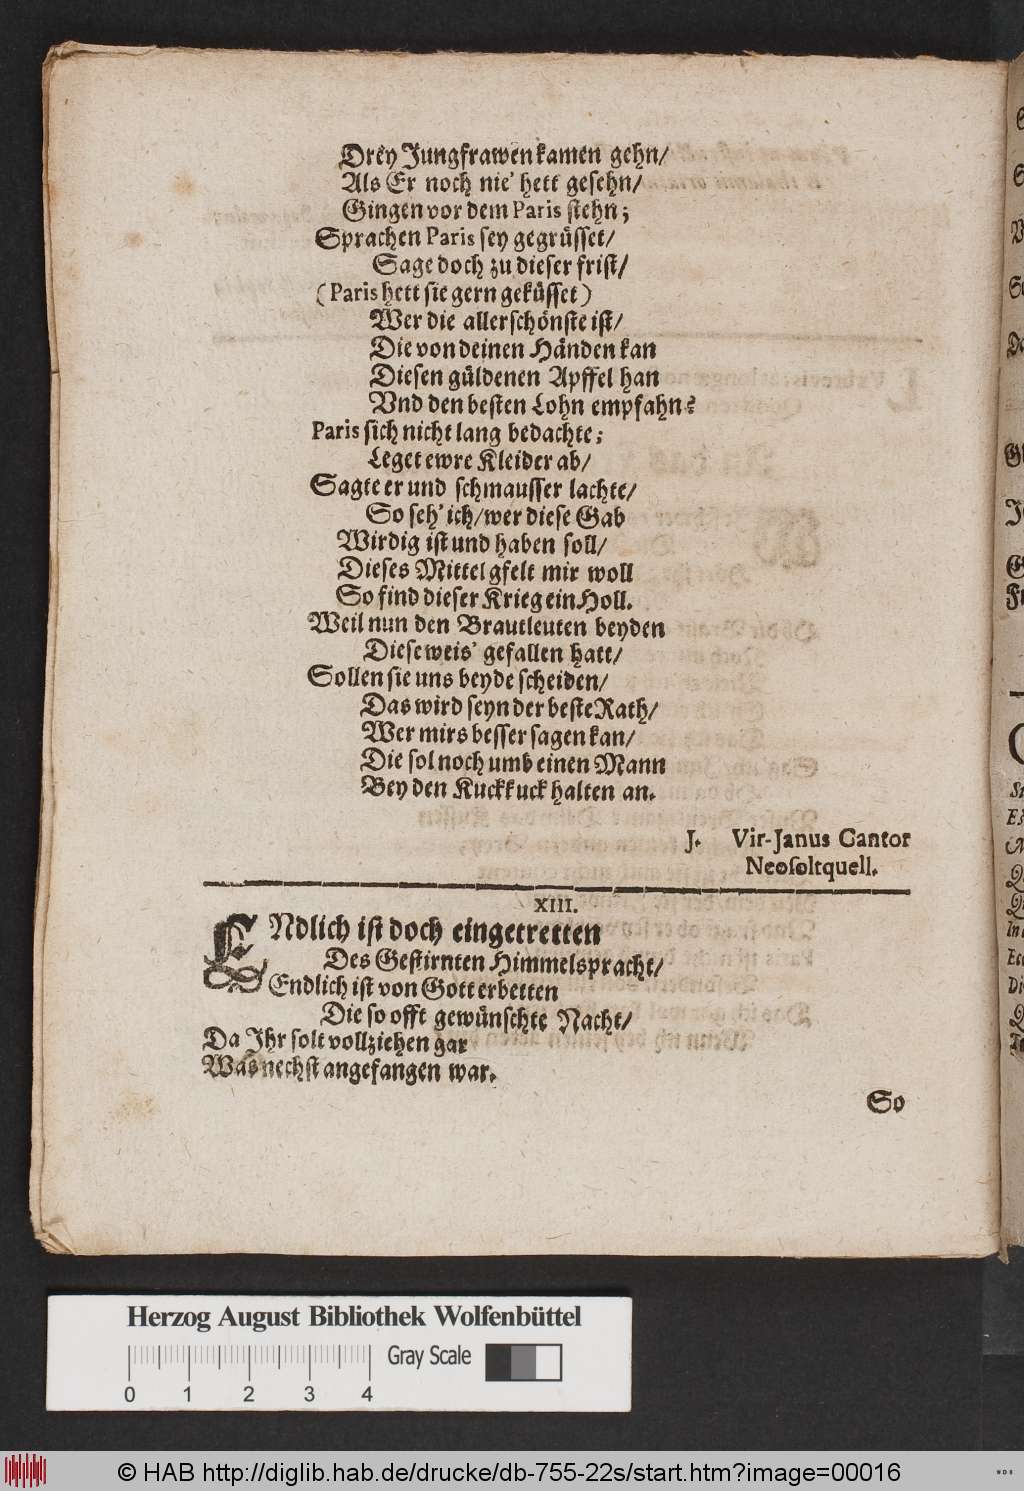 Drey Jungfrawen kamen gehn/
Als Er noch nie' hett gesehn/
Gingen vor dem Paris stehn;
Sprachen Paris sey gegrüsset/
Sage doch zu dieser frist/
(Paris hett sie gern geküsset)
Wer die allerschönste ist/
Die von deinen Händen kan
Diesen güldenen Apffel han
Vnd den besten Lohn empfahn?
Paris sich nicht lang bedachte;
Leget ewre Kleider ab/
Sagte er und schmausser lachte/
So seh' ich/wer diese Gab
Wirdig ist und haben soll/
Dieses Mittel gfelt mir woll
So find dieser Krieg ein Holl.
Weil nun den Brautleuten beyden
Diese weis' gefallen hatt/
Sollen sie uns beyde scheiden/
Das wird seyn der beste Rath/
Wer mirs besser sagen kan/
Die sol noch umb einen Mann
Bey den Kuckkuck halten an.
J. Vir-Janus Cantor
Neosoltquell.
XIII.
ENdlich ist doch eingetretten
Des Gestirnten Himmelspracht/
Endlich ist von Gott erbetten
Die so offt gewünschte Nacht/
Da Ihr solt vollziehen gar
Was nechst angefangen war.
So
Herzog August Bibliothek Wolfenbüttel
Gray Scale
0 1 2 3 4
© HAB http://diglib.hab.de/drucke/db-755-22s/start.htm?image=00016